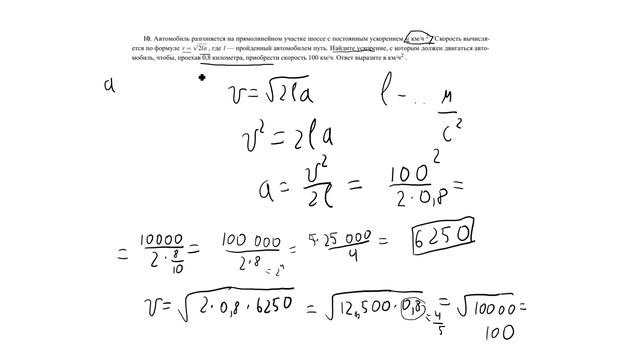 10. Автомобиль разгоняется на прямолинейном участке шоссе с постоянным ускорением a км/ч². Скорость вычисля-
ется по формуле v = √2la, где l — пройденный автомобилем путь. Найдите ускорение, с которым должен двигаться авто-
мобиль, чтобы, проехав 0,8 километра, приобрести скорость 100 км/ч. Ответ выразите в км/ч².
a v = √2la l - .. м/с²
v² = 2la
a = v²/2l = 100²/2·0,8 =
= 10000/2·8/10 = 100 000/2·8 = 25 000/4 = 6250
v = √2·0,8·6250 = √12500·0,8 = √10000 =
= 4/5 100